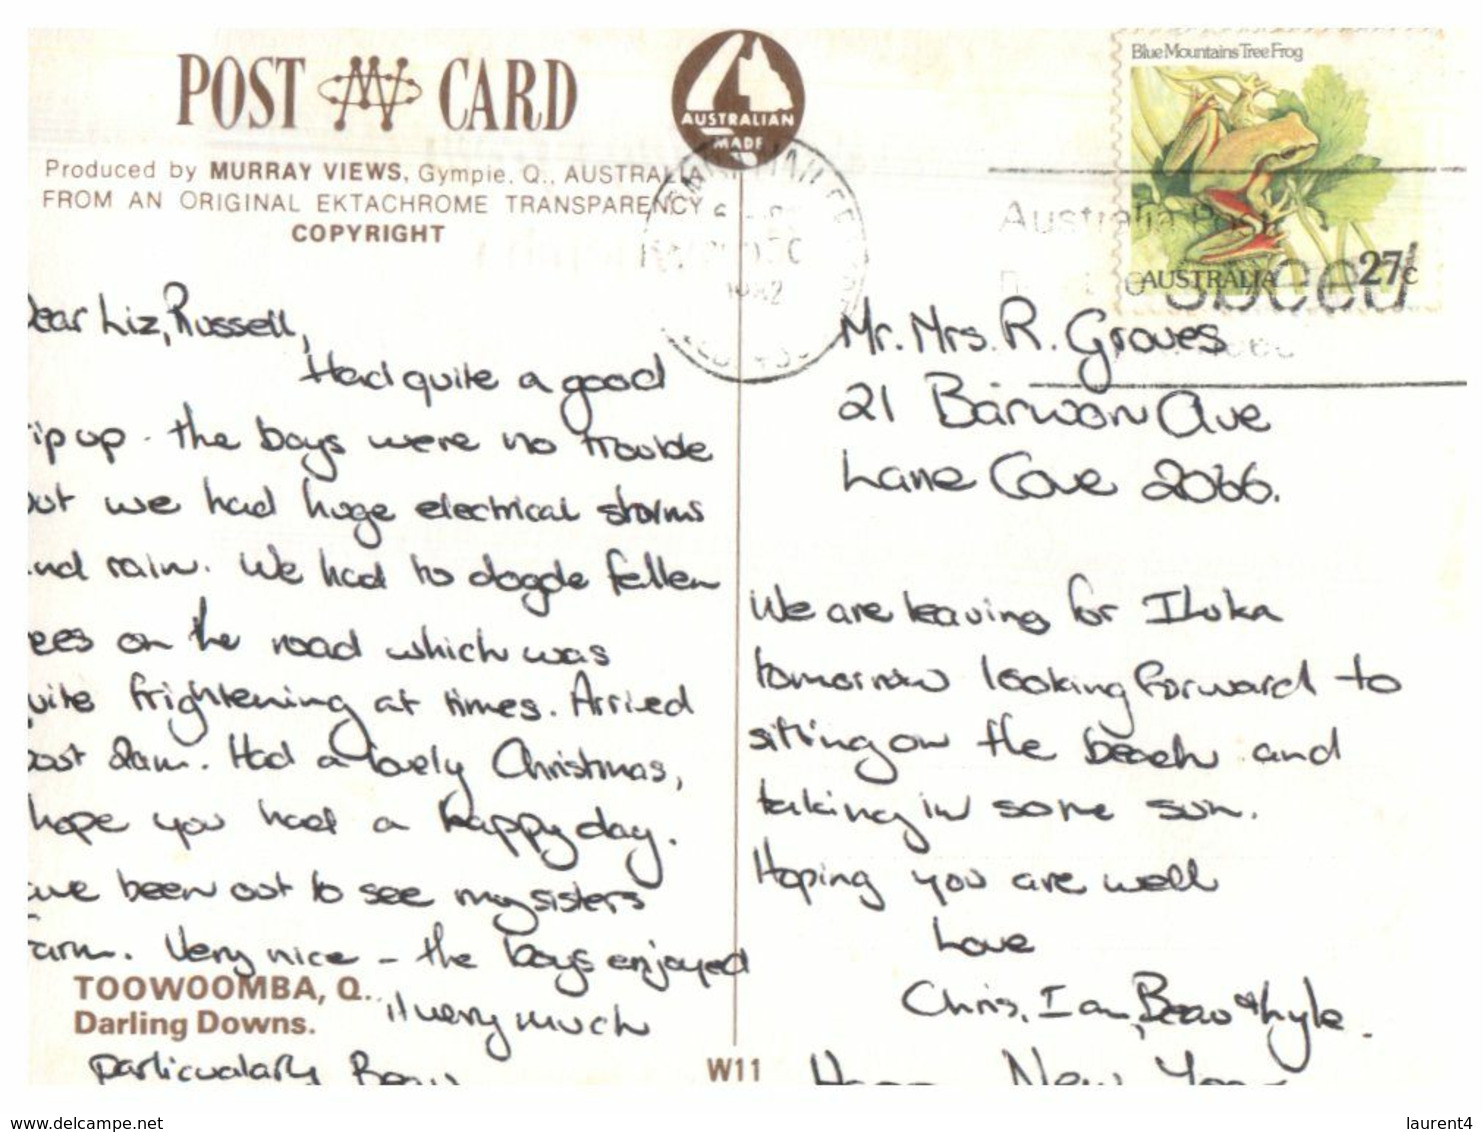 POST CARD
AUSTRALIAN
MADE
Produced by MURRAY VIEWS, Gympie, Q., AUSTRALIA
FROM AN ORIGINAL EKTACHROME TRANSPARENCY
COPYRIGHT
Blue Mountains Tree Frog
AUSTRALIA 27c
Australia Post
1982
ear Liz, Russell,
Had quite a good
rip up - the boys were no trouble
out we had huge electrical storms
and rain. We had to dogde fallen
ees on the road which was
uite frightening at times. Arrived
past 2am. Had a lovely Christmas,
hope you had a happy day.
ave been out to see my sisters
Farm. Very nice - the boys enjoyed
it very much
particularly Beau
TOOWOOMBA, Q.
Darling Downs.
W11
Mr. Mrs. R. Groves
21 Barwon Ave
Lane Cove 2066.
We are leaving for Iluka
tomorrow looking forward to
sitting on the beach and
taking in some sun.
Hoping you are well
Love
Chris, Ian, Beau & Lyle.
Happy New Year
www.delcampe.net
laurent4